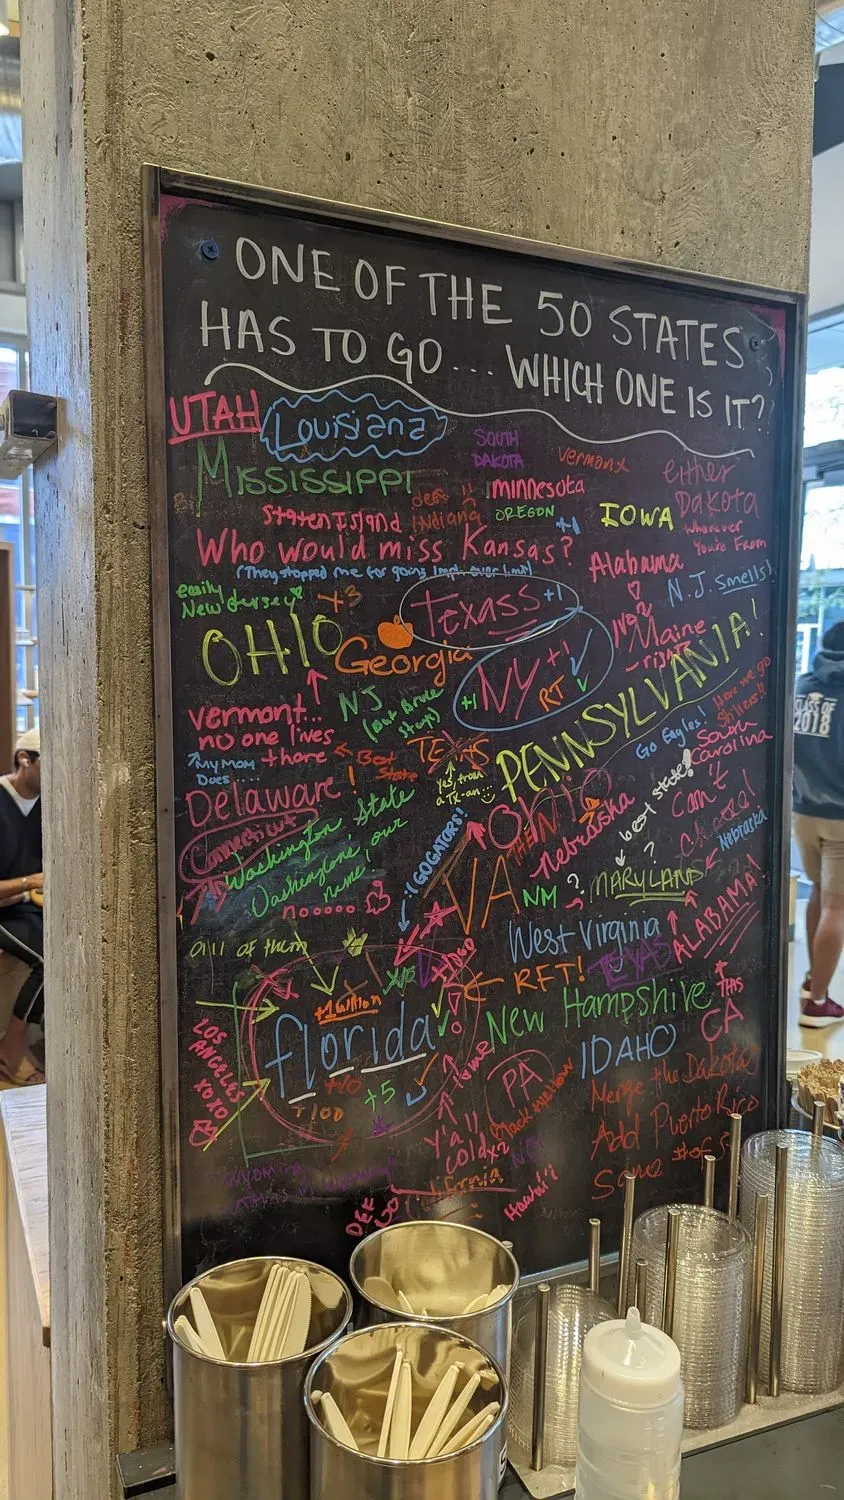 ONE OF THE 50 STATES
HAS TO GO... WHICH ONE IS IT?
UTAH
Louisiana
SOUTH
DAKOTA
vermont
either
Dakota
wherever
You're From
MISSISSIPPI
minnesota
Staten Island
indiana
OREGON
+1
IOWA
Who would miss Kansas?
(They stopped me for going
Alabama
N.J. smells!
easily
New Jersey
+3
Texass +1
No?
Maine
- right
OHIO
Georgia
NY +1
+1
RT
PENNSYLVANIA!
vermont...
no one lives
there
NJ
(but Bruce
stays)
My mom
Does
Best
State
TEXAS
yes, from
a TX-an
Go Eagles!
Here we go
Stillers!!
South
Carolina
can't
Delaware!
Connecticut
Washington State
name!
nooooo
!GOGATORS!
Ohio
nebraska
best state!
Nebraska
VA
NM
?
MARYLAND
all of them
West Virginia
ALABAMA!
TEXAS
RFT!
+1 million
New Hampshire
THIS
CA
LOS
ANGELES
XOXO
florida
+10
+100
+5
IDAHO
PA
Merge the Dakotas
Add Puerto Rico
Same # of 5
Y'all
cold x2
Hawai'i
DEE